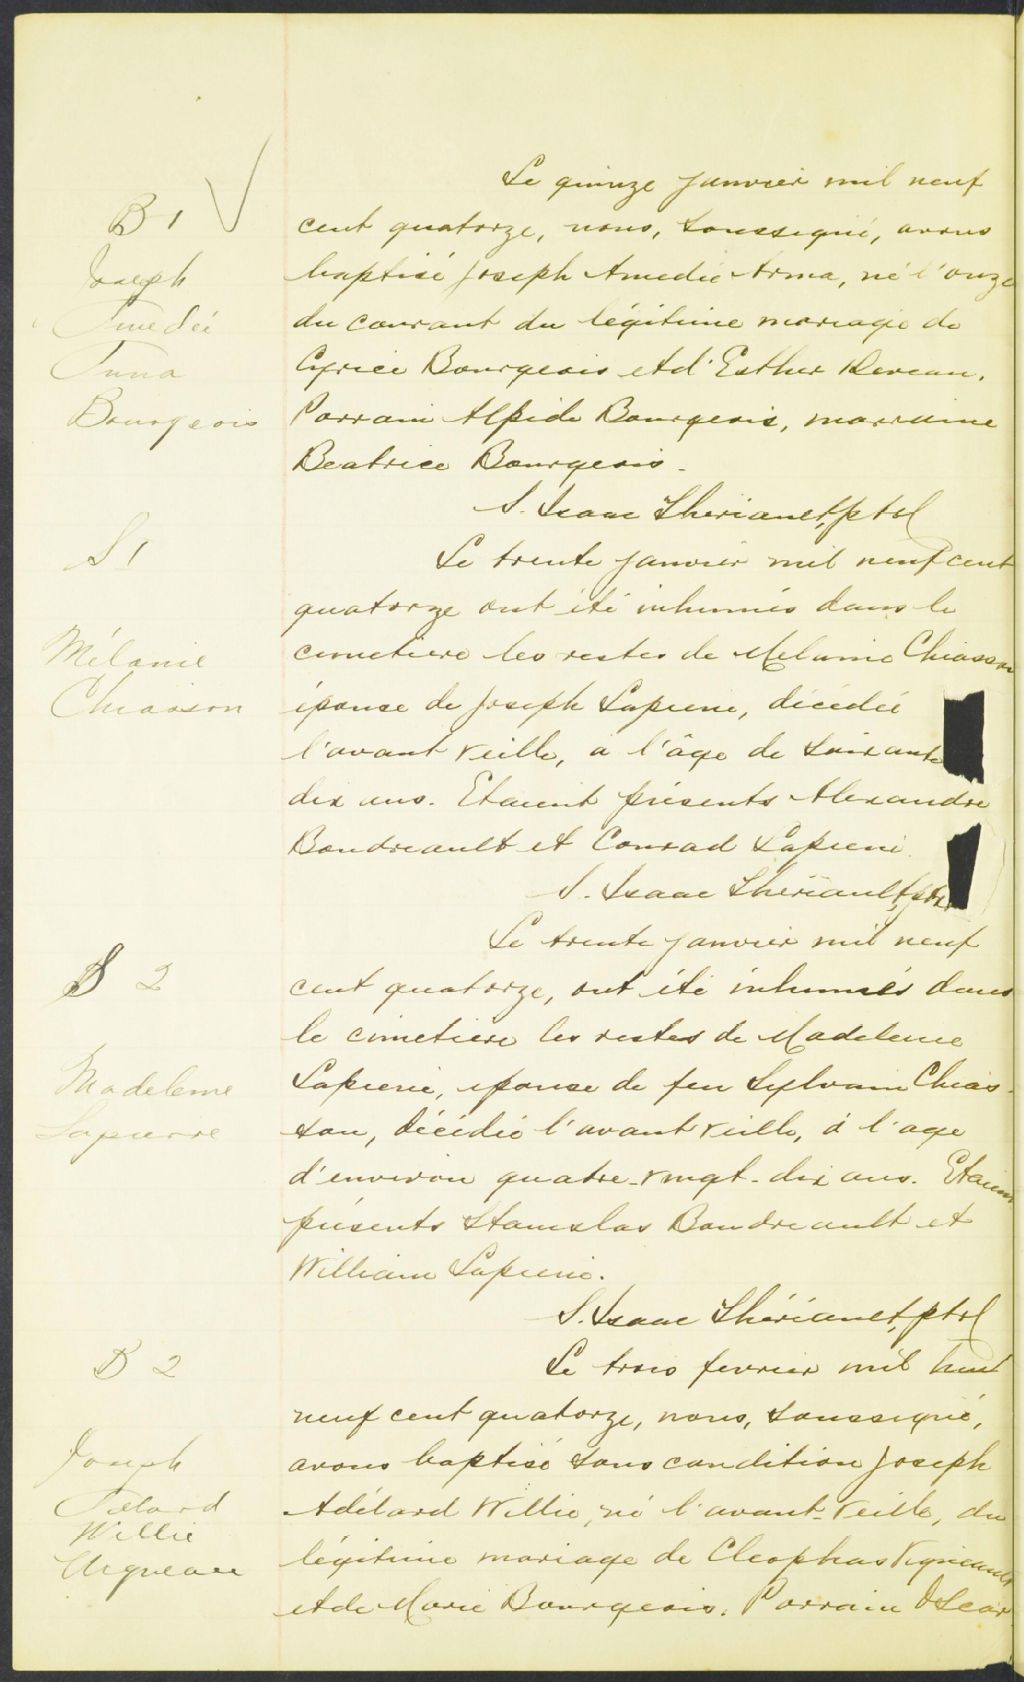 B 1
Joseph
Amedée
Anna
Bourgeois
Le quinze janvier mil neuf
cent quatorze, nous, soussigné, avons
baptisé Joseph Amedée Arma, né l'onze
du courant du légitime mariage de
Cyrice Bourgeois et d'Esther
Parrain Alpide Bourgeois, marraine
Beatrice Bourgeois.
S. Isaac Thériault, ptre
S 1
Mélanie
Chiasson
Le trente janvier mil neuf cent
quatorze ont été inhumés dans le
cimetiere les restes de Mélanie Chiasson
épouse de Joseph Lapierre, décédée
l'avant veille, a l'âge de soixante
dix ans. Etaient présents Alexandre
Boudreault et Conrad Lapierre
S. Isaac Thériault, ptre
S 2
Madeleine
Lapierre
Le trente janvier mil neuf
cent quatorze, ont été inhumés dans
le cimetiere les restes de Madeleine
Lapierre, epouse de feu Sylvain Chias-
son, décédée l'avant veille, à l'age
d'environ quatre-vingt-dix ans. Etaient
présents Stanislas Boudreault et
William Lapierre.
S. Isaac Thériault, ptre
B 2
Joseph
Adélard
Willie
Vigneau
Le trois fevrier mil huit
neuf cent quatorze, nous, soussigné,
avons baptisé sous condition Joseph
Adélard Willie, né l'avant-veille, du
légitime mariage de Cleophas Vigneault
et de Marie Bourgeois. Parrain Oscar